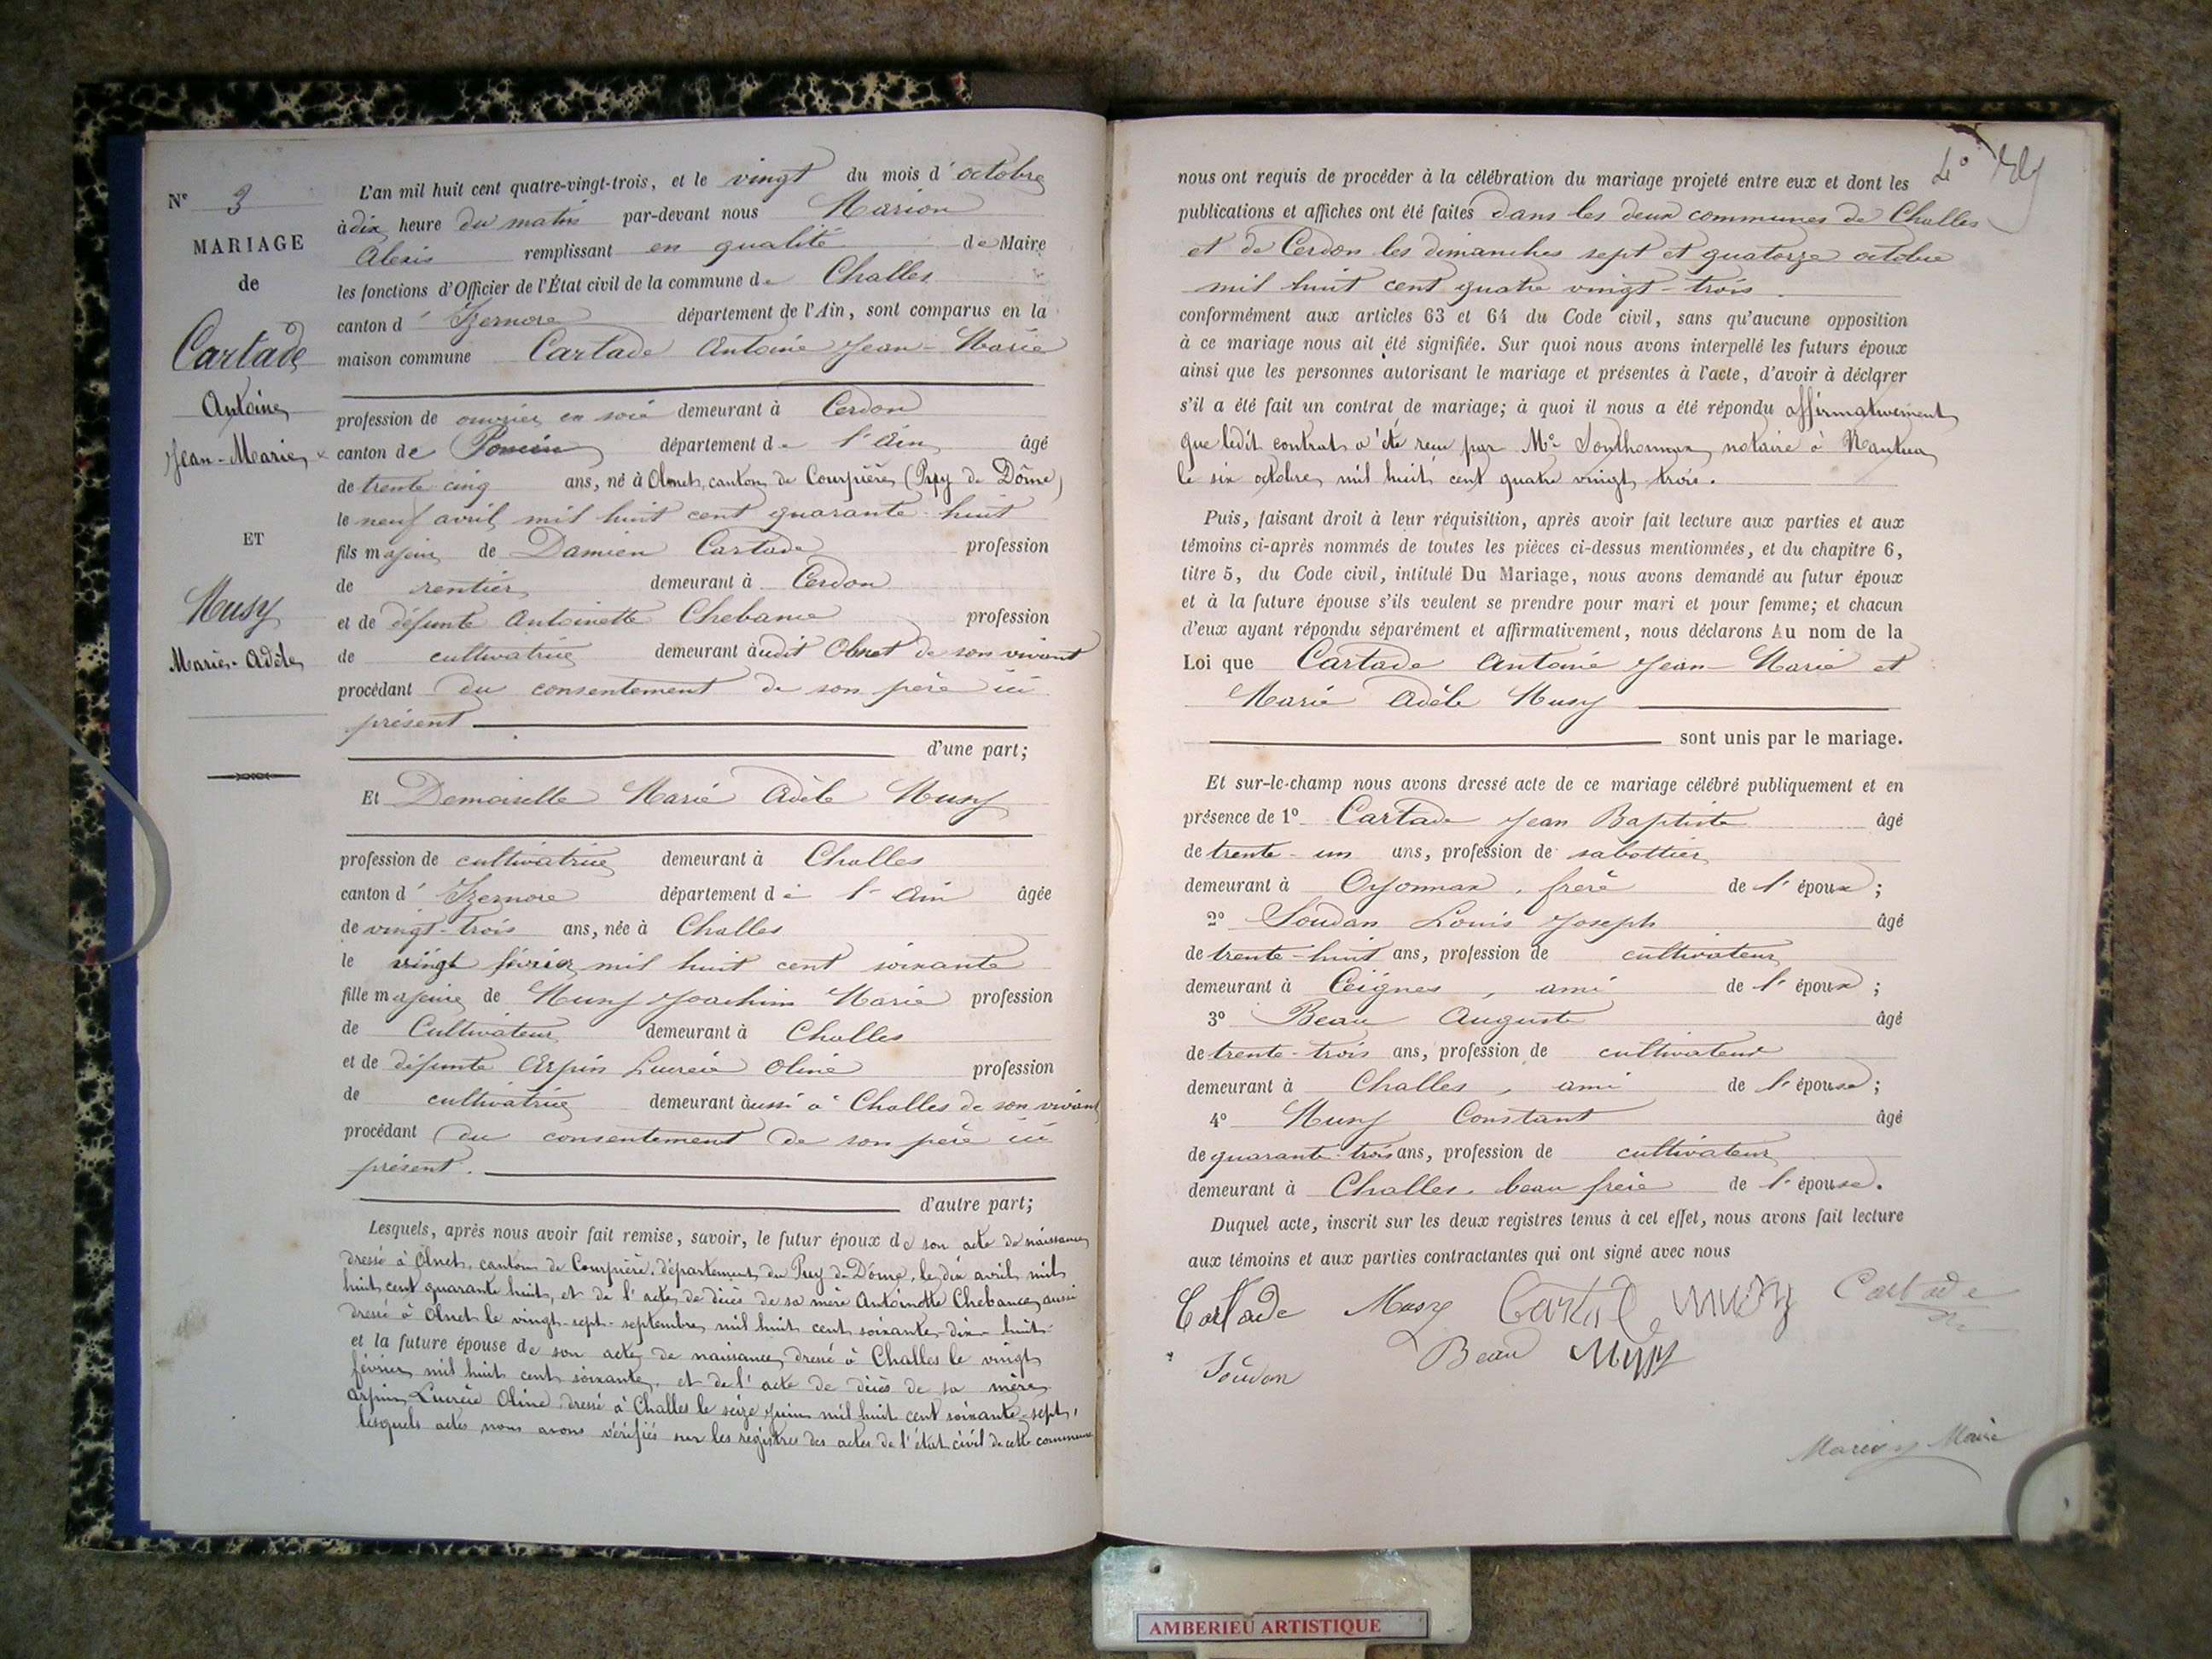 N° 3
MARIAGE
de
Cartade
Antoine
Jean-Marie
ET
Musy
Marie-Adèle
L'an mil huit cent quatre-vingt-trois, et le vingt du mois d'octobre
à dix heure du matin par-devant nous Marion
Alexis remplissant en qualité de Maire
les fonctions d'Officier de l'État civil de la commune de Challes
canton d'Izernore département de l'Ain, sont comparus en la
maison commune Cartade Antoine Jean-Marie
profession de ouvrier en soie demeurant à Cerdon
canton de Poncin département de l'Ain âgé
de trente cinq ans, né à Olmet, canton de Courpière (Puy de Dôme)
le neuf avril mil huit cent quarante-huit
fils majeur de Damien Cartade profession
de rentier demeurant à Cerdon
et de défunte Antoinette Chebance profession
de cultivatrice demeurant àudit Olmet de son vivant
procédant du consentement de son père ici
présent
d'une part;
Et Demoiselle Marie Adèle Musy
profession de cultivatrice demeurant à Challes
canton d'Izernore département de l'Ain âgée
de vingt-trois ans, née à Challes
le vingt février mil huit cent soixante
fille majeure de Musy Joachim Marie profession
de Cultivateur demeurant à Challes
et de défunte Arpin Lucrèce Oline profession
de cultivatrice demeurant àussi à Challes de son vivant
procédant du consentement de son père ici
présent.
d'autre part;
Lesquels, après nous avoir fait remise, savoir, le futur époux de son acte de naissance
dressé à Olmet, canton de Courpière, département du Puy de Dôme, le dix avril mil
huit cent quarante huit, et de l'acte de décès de sa mère Antoinette Chebance, aussi
dressé à Olmet le vingt-sept septembre mil huit cent soixante-dix-huit
et la future épouse de son acte de naissance dressé à Challes le vingt
février mil huit cent soixante, et de l'acte de décès de sa mère
Arpin Lucrèce Oline dressé à Challes le seize juin mil huit cent soixante-sept,
lesquels actes nous avons vérifiés sur les registres des actes de l'état civil de cette commune
nous ont requis de procéder à la célébration du mariage projeté entre eux et dont les
publications et affiches ont été faites dans les deux communes de Challes
et de Cerdon les dimanches sept et quatorze octobre
mil huit cent quatre vingt-trois.
conformément aux articles 63 et 64 du Code civil, sans qu'aucune opposition
à ce mariage nous ait été signifiée. Sur quoi nous avons interpellé les futurs époux
ainsi que les personnes autorisant le mariage et présentes à l'acte, d'avoir à déclarer
s'il a été fait un contrat de mariage; à quoi il nous a été répondu affirmativement
que ledit contrat a été reçu par Me Sonthonnax notaire à Nantua
le six octobre mil huit cent quatre vingt trois.
Puis, faisant droit à leur réquisition, après avoir fait lecture aux parties et aux
témoins ci-après nommés de toutes les pièces ci-dessus mentionnées, et du chapitre 6,
titre 5, du Code civil, intitulé Du Mariage, nous avons demandé au futur époux
et à la future épouse s'ils veulent se prendre pour mari et pour femme; et chacun
d'eux ayant répondu séparément et affirmativement, nous déclarons Au nom de la
Loi que Cartade Antoine Jean-Marie et
Marie Adèle Musy
sont unis par le mariage.
Et sur-le-champ nous avons dressé acte de ce mariage célébré publiquement et en
présence de 1° Cartade Jean Baptiste âgé
de trente-un ans, profession de sabottier
demeurant à Oyonnax, frère de l'époux;
2° Soudan Louis Joseph âgé
de trente-huit ans, profession de cultivateur
demeurant à Ceignes, ami de l'époux;
3° Beau Auguste âgé
de trente-trois ans, profession de cultivateur
demeurant à Challes, ami de l'épouse;
4° Musy Constant âgé
de quarante-trois ans, profession de cultivateur
demeurant à Challes, beau frère de l'épouse.
Duquel acte, inscrit sur les deux registres tenus à cet effet, nous avons fait lecture
aux témoins et aux parties contractantes qui ont signé avec nous
Cartade Musy Cartade Musy Cartade
Soudan Beau Musy
Marion Maire
AMBERIEU ARTISTIQUE